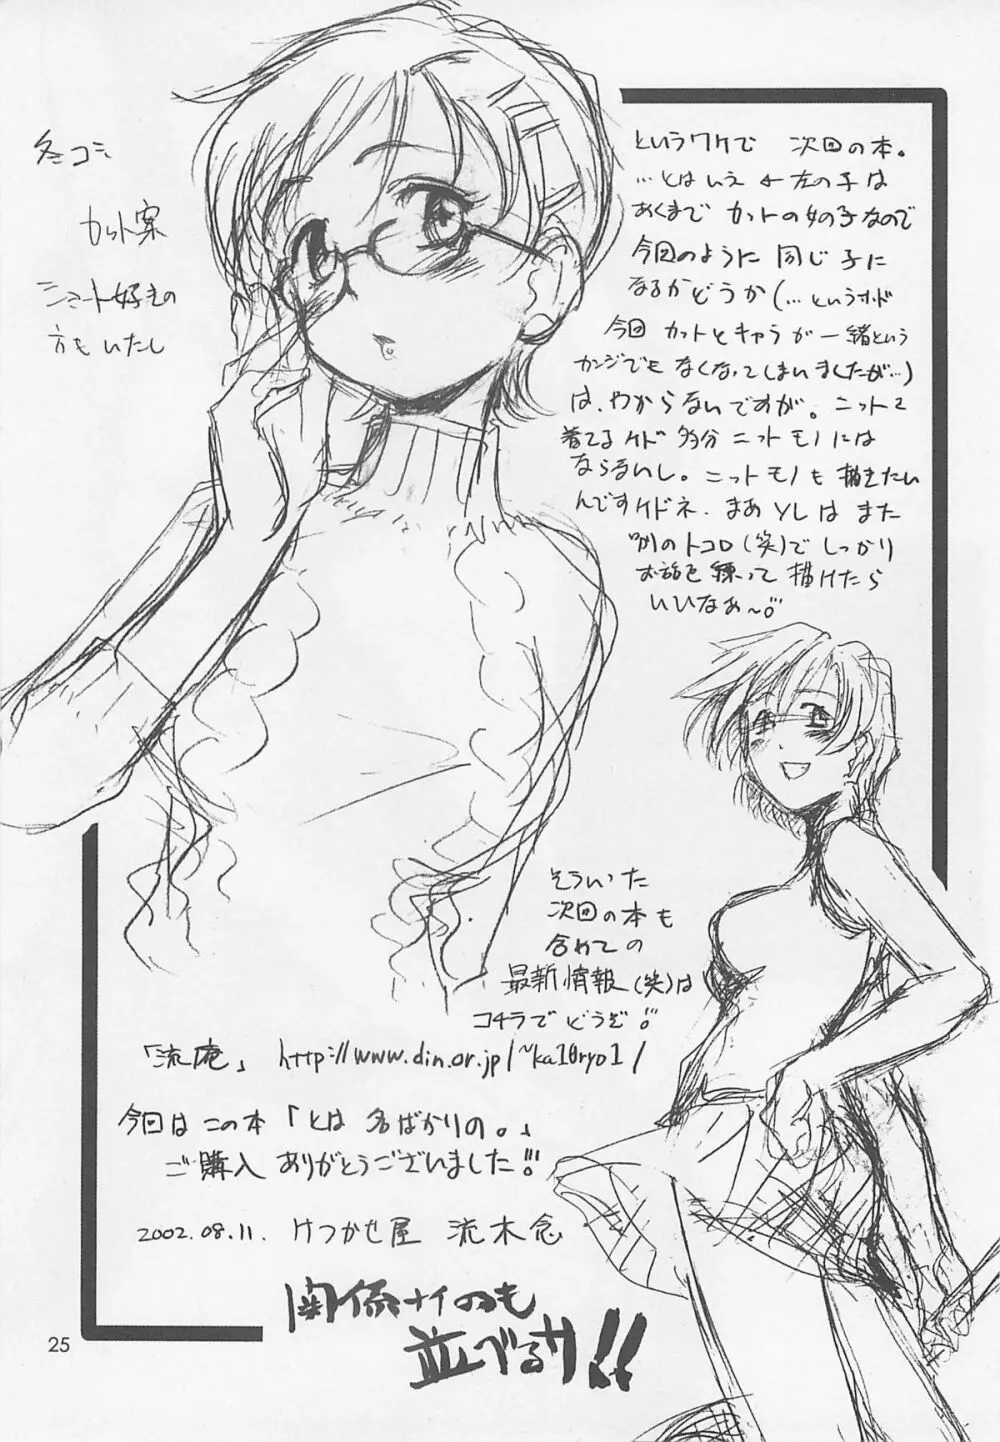 冬コミ
カット案
ショート好きの
方もいたし
というワケで 次回の本。
…とはいえ ← 左の子は
あくまで カットの女の子なので
今回のように 同じ子に
なるかどうか(…という
今回 カットとキャラが 一緒という
カンジでも なくなってしまいましたが…)
は、わからないですが。ニット
着てるケド 多分 ニットモノには
ならないし。ニットモノも 描きたい
んですケドネ. まあ ソレは また
別のトコロ(笑)で しっかり
お話を 練って 描けたら
いいなぁ〜!!
そういった
次回の本も
含めての
最新情報(笑)は
コチラで どうぞ!!
「流庵」 http://www.din.or.jp/~ka10ryo1/
今回は この本「とは 名ばかりの。」
ご購入 ありがとうございました!!
2002.08.11. けつかせ屋 流木念
関係ナイのも
並べるサ!!
25